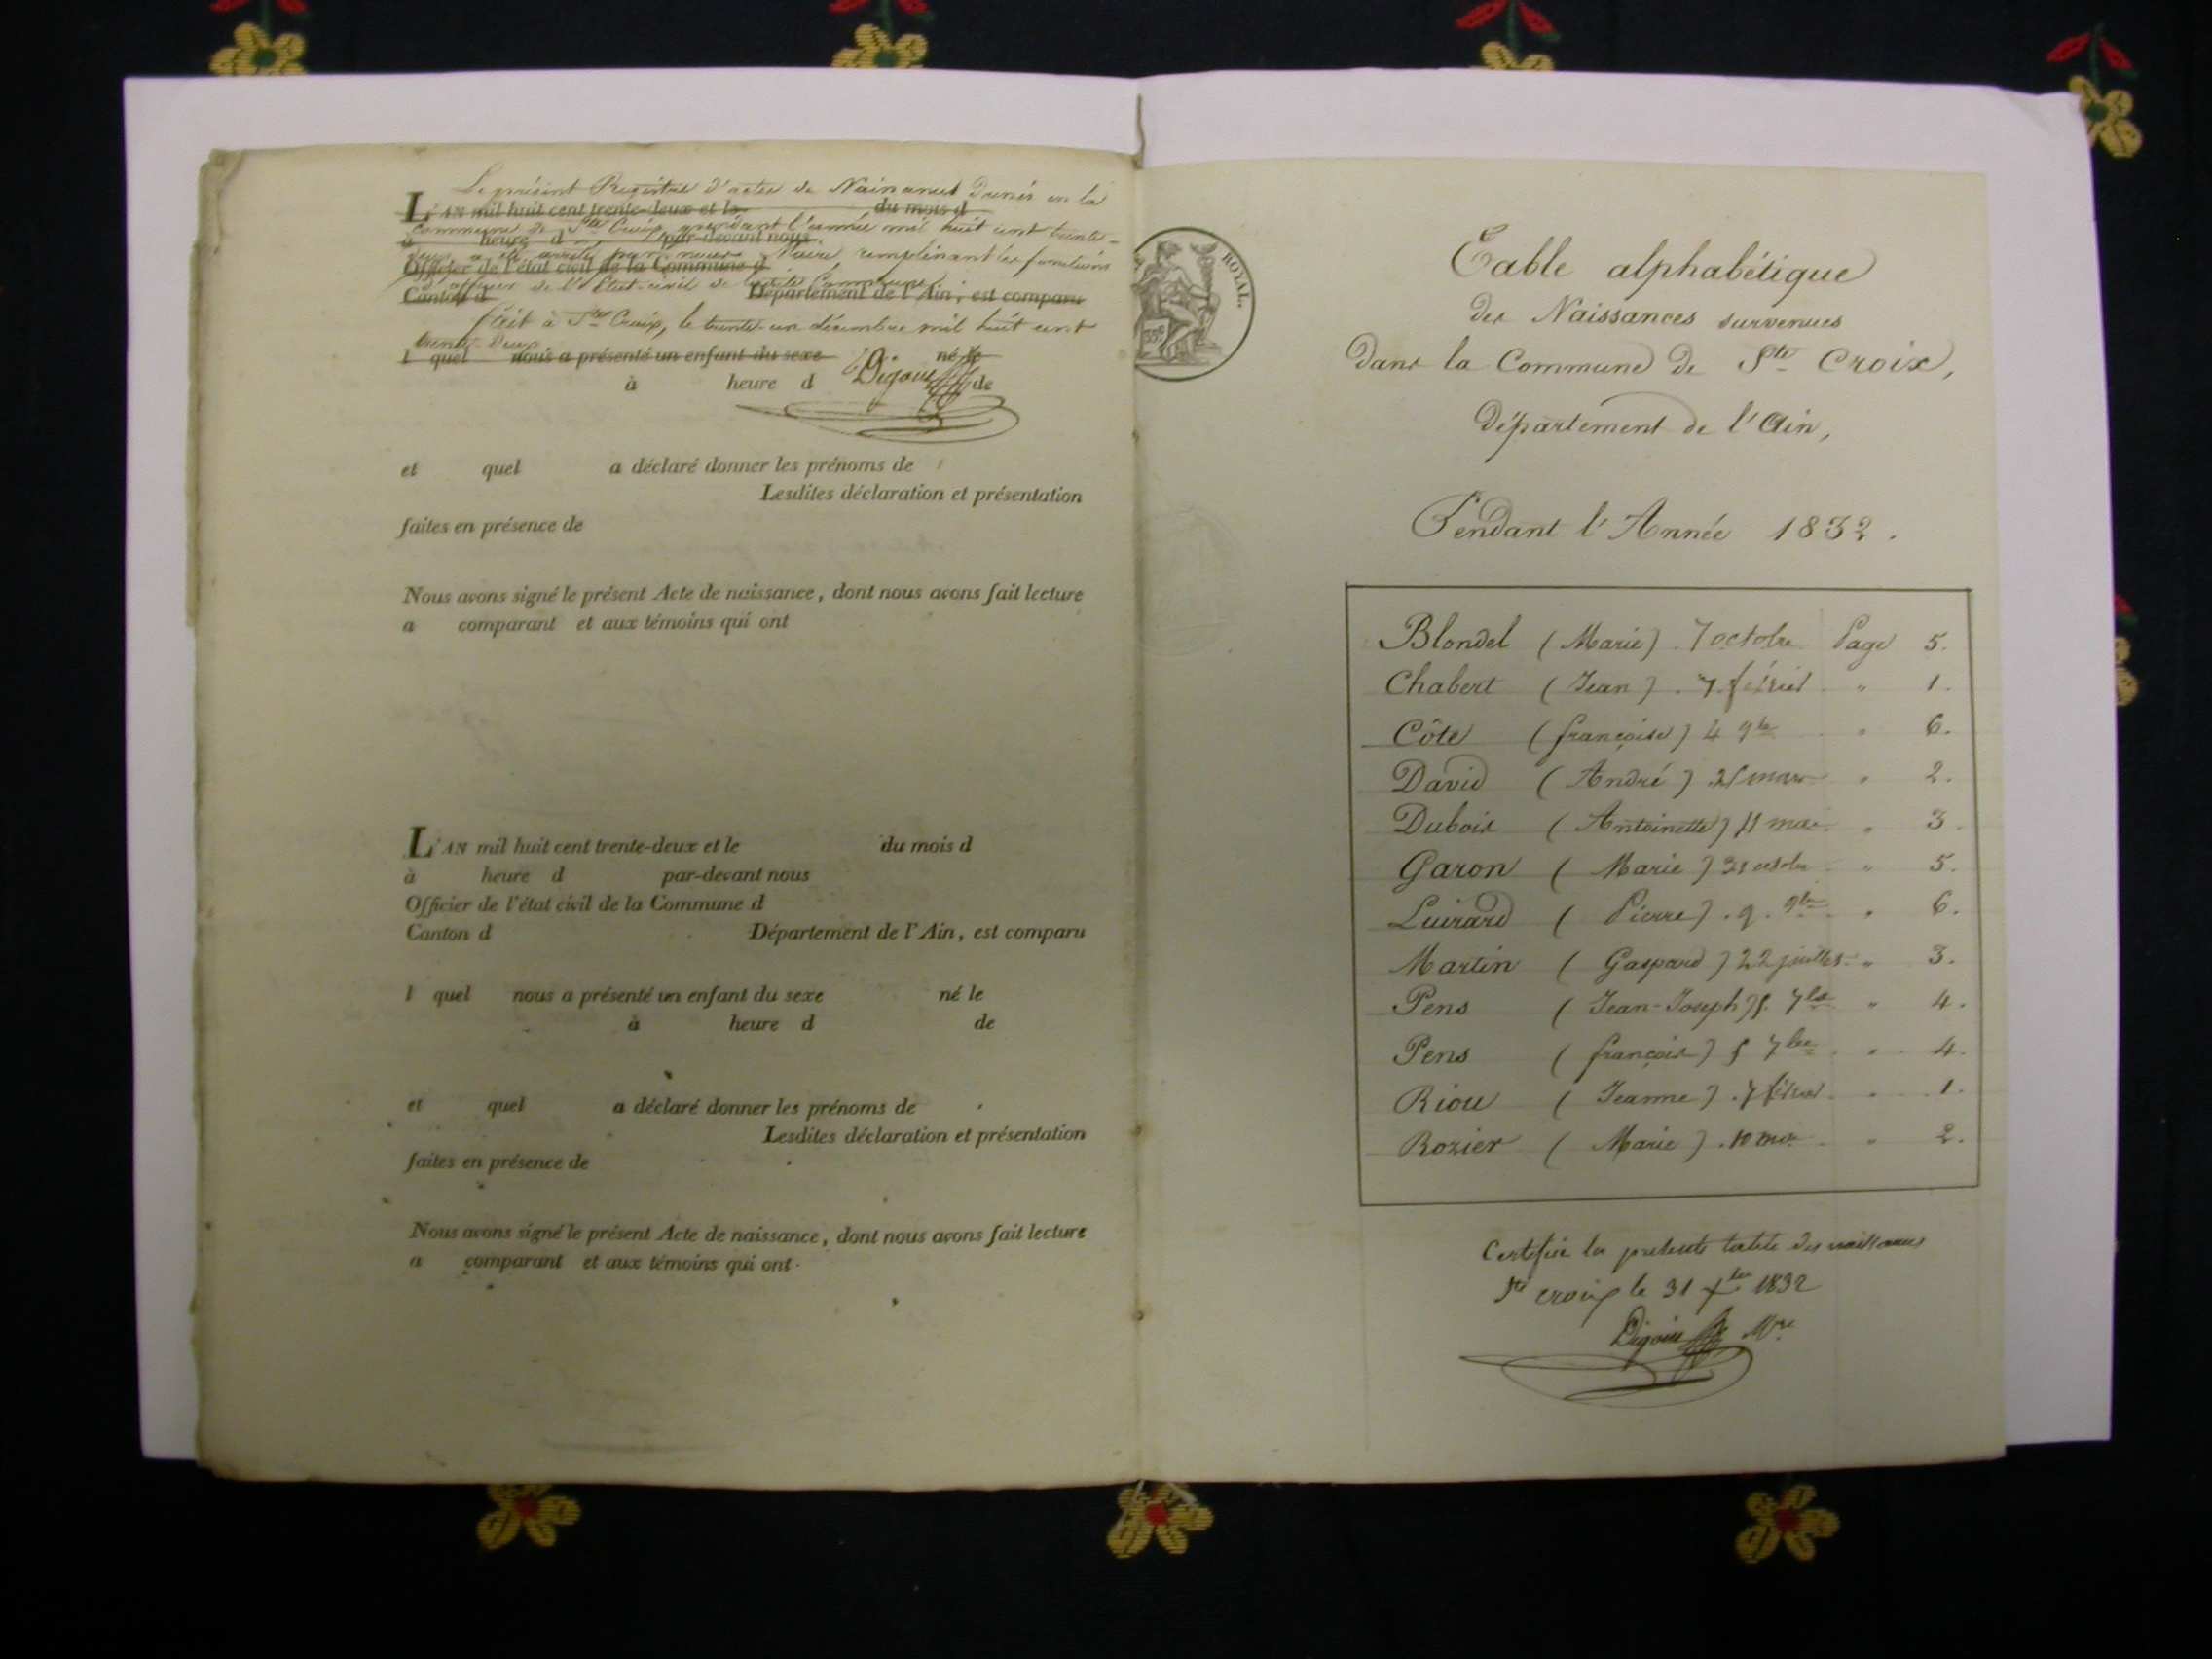 Le présent Registre d'actes de Naissances Dressés en la
L'AN mil huit cent trente-deux et le du mois d
commune de Ste Croix, pendant l'année mil huit cent trente-
à heure d par-devant nous
deux a été arrêté par nous Maire, remplissant les fonctions
Officier de l'état civil de la Commune d
d'officier de l'Etat-civil de ladite Commune.
Canton d Département de l'Ain, est comparu
Fait à Ste Croix, le trente-un décembre mil huit cent
trente Deux
l quel nous a présenté un enfant du sexe né le
Digoin
à heure d de
et quel a déclaré donner les prénoms de
Lesdites déclaration et présentation
faites en présence de
Nous avons signé le présent Acte de naissance, dont nous avons fait lecture
a comparant et aux témoins qui ont
L'AN mil huit cent trente-deux et le du mois d
à heure d par-devant nous
Officier de l'état civil de la Commune d
Canton d Département de l'Ain, est comparu
l quel nous a présenté un enfant du sexe né le
à heure d de
et quel a déclaré donner les prénoms de
Lesdites déclaration et présentation
faites en présence de
Nous avons signé le présent Acte de naissance, dont nous avons fait lecture
a comparant et aux témoins qui ont
ROYAL.
35c
Table alphabétique
des Naissances survenues
dans la Commune de Ste Croix,
Département de l'Ain,
Pendant l'Année 1832.
Blondel (Marie) . 7 octobre Page 5.
Chabert (Jean) . 7 février " 1.
Côte (françoise) 4 9bre " 6.
David (André) 31 mars " 2.
Dubois (Antoinette) 11 mai " 3.
Garon (Marie) 31 octobre " 5.
Luirard (Pierre) . 9 . 9bre " 6.
Martin (Gaspard) 22 juillet " 3.
Pens (Jean-Joseph) 5. 7bre " 4.
Pens (françois) 5 7bre " 4.
Riou (Jeanne) . 7 février " 1.
Rozier (Marie) . 10 mai " 2.
Certifié la présente table des naissances
Ste croix le 31 Xbre 1832
Digoin Mre